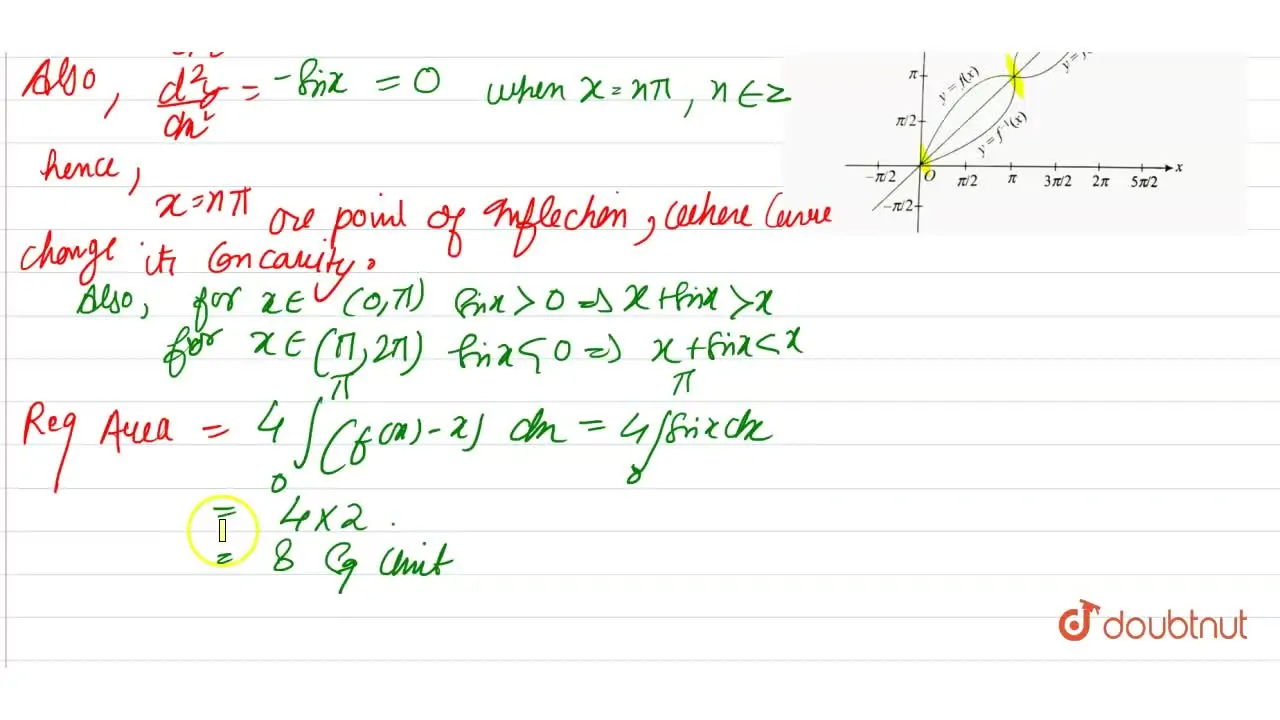 Also, d²y/dx² = -sinx = 0 when x = nπ, n ∈ Z
hence,
x = nπ are point of inflection, where curve
change its concavity.
Also, for x ∈ (0, π) sinx > 0 ⇒ x + sinx > x
for x ∈ (π, 2π) sinx < 0 ⇒ x + sinx < x
Req Area = 4 ∫₀^π (f(x) - x) dx = 4 ∫₀^π sinx dx
= 4 × 2
= 8 sq unit
π
y = f(x)
π/2
y = f⁻¹(x)
-π/2 O π/2 π 3π/2 2π 5π/2 x
-π/2
doubtnut